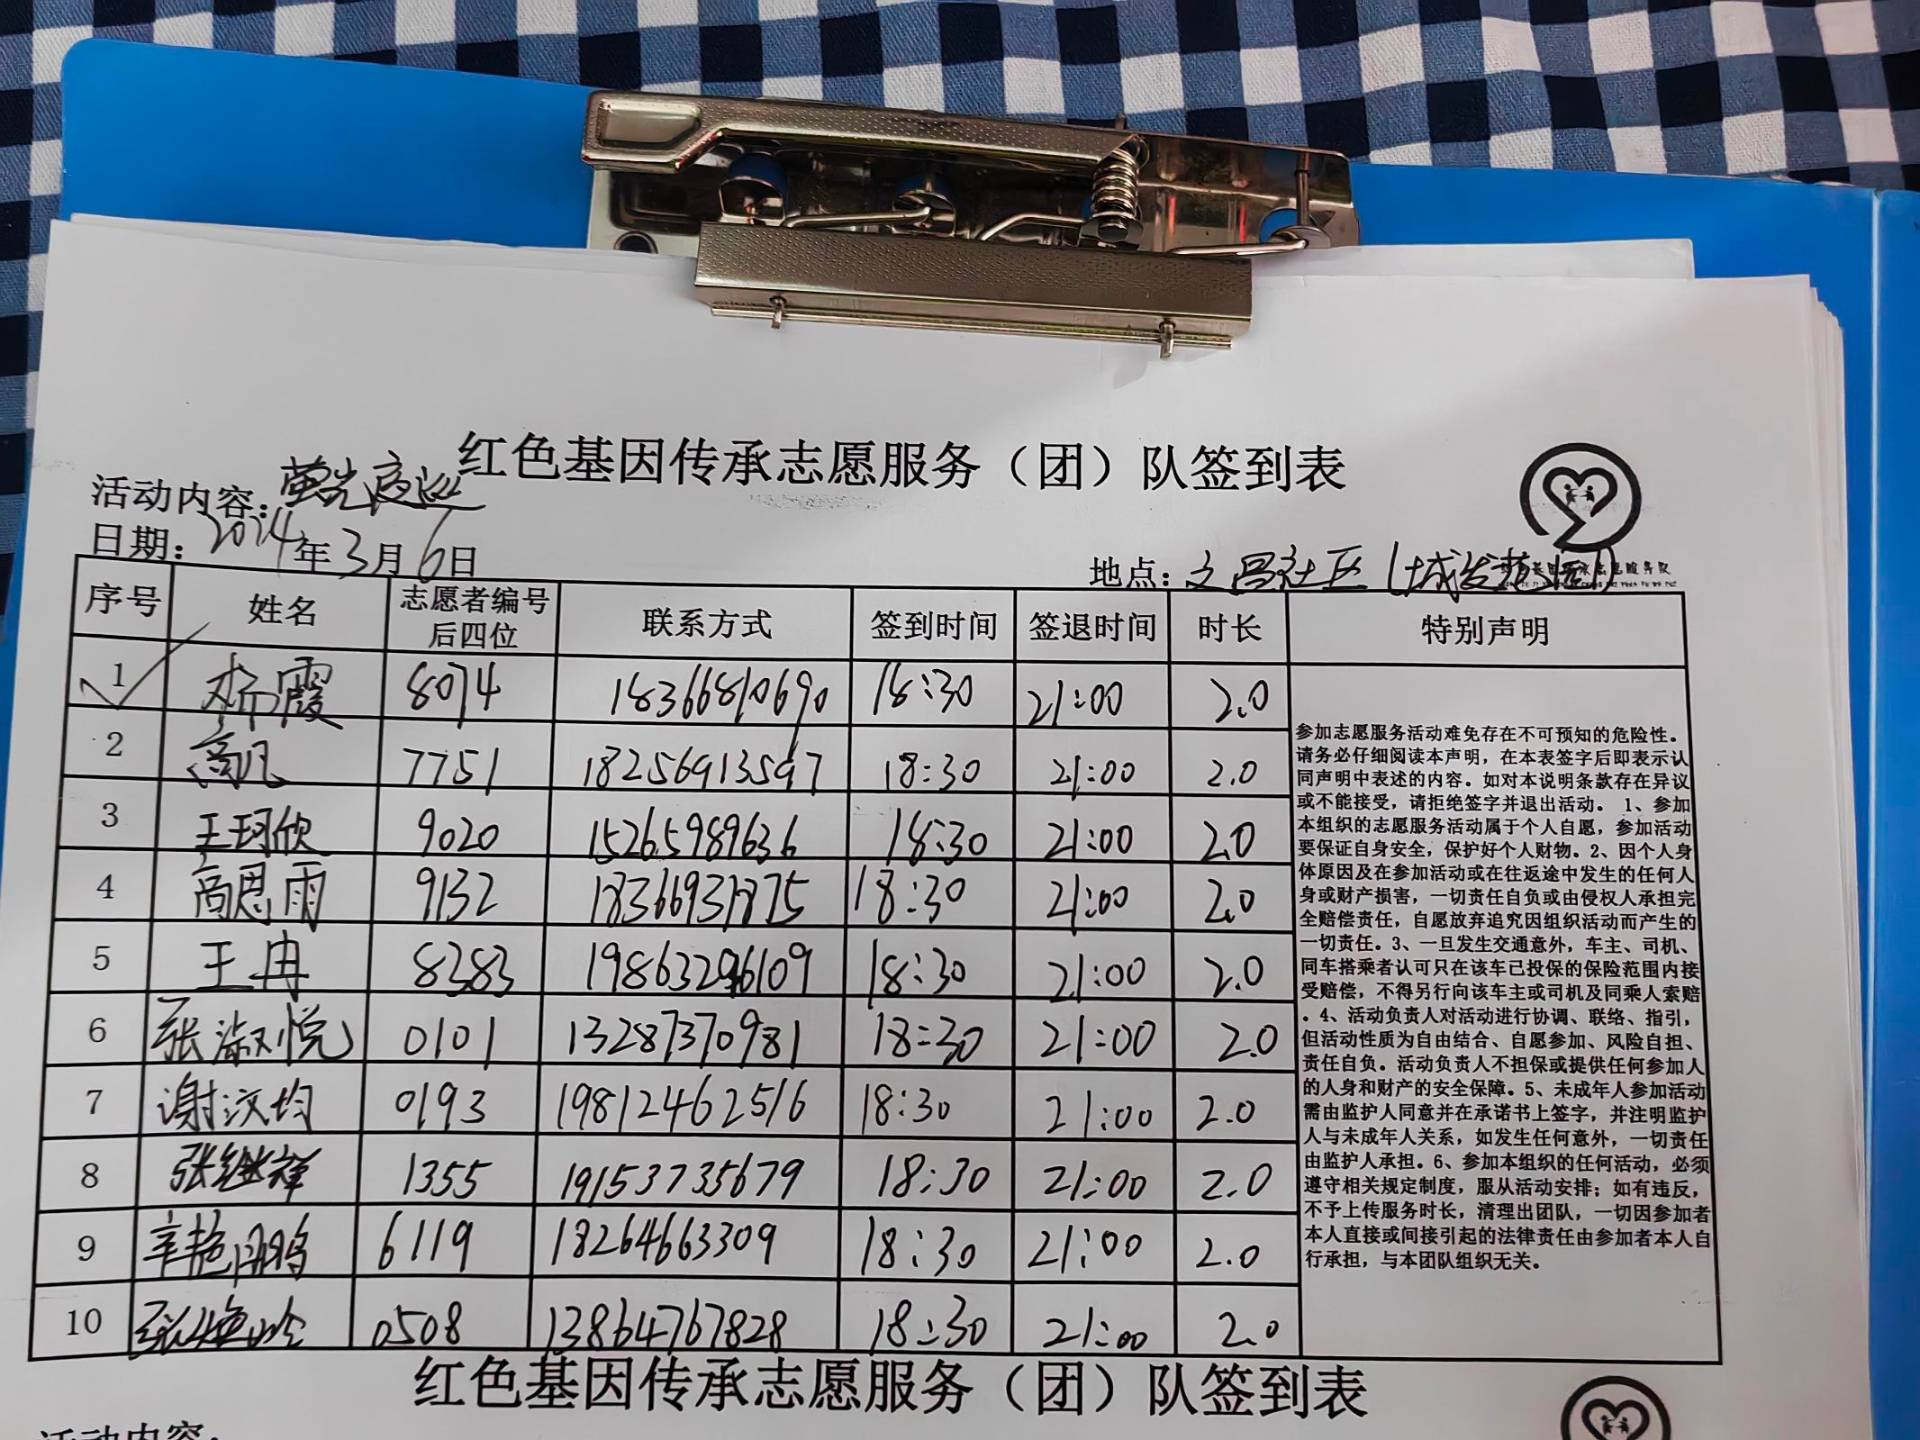 红色基因传承志愿服务（团）队签到表
活动内容：萤光夜巡
日期：2024年3月6日
地点：文昌社区（城发范园）
序号 姓名 志愿者编号后四位 联系方式 签到时间 签退时间 时长 特别声明
1 霞 8074 18366810690 18:30 21:00 2.0
2 高凡 7751 18256913597 18:30 21:00 2.0
3 王珂欣 9020 15265989636 18:30 21:00 2.0
4 高思雨 9132 18366931875 18:30 21:00 2.0
5 王冉 8383 19863296109 18:30 21:00 2.0
6 张淑悦 0101 13287370981 18:30 21:00 2.0
7 谢汶均 0193 19812462516 18:30 21:00 2.0
8 张继祥 1355 19153735679 18:30 21:00 2.0
9 辛艳鹏 6119 18264663309 18:30 21:00 2.0
10 张 0508 13864767828 18:30 21:00 2.0
参加志愿服务活动难免存在不可预知的危险性。
请务必仔细阅读本声明，在本表签字后即表示认
同声明中表述的内容。如对本说明条款存在异议
或不能接受，请拒绝签字并退出活动。 1、参加
本组织的志愿服务活动属于个人自愿，参加活动
要保证自身安全，保护好个人财物。2、因个人身
体原因及在参加活动或在往返途中发生的任何人
身或财产损害，一切责任自负或由侵权人承担完
全赔偿责任，自愿放弃追究因组织活动而产生的
一切责任。3、一旦发生交通意外，车主、司机、
同车搭乘者认可只在该车已投保的保险范围内接
受赔偿，不得另行向该车主或司机及同乘人索赔
。4、活动负责人对活动进行协调、联络、指引，
但活动性质为自由结合、自愿参加、风险自担、
责任自负。活动负责人不担保或提供任何参加人
的人身和财产的安全保障。5、未成年人参加活动
需由监护人同意并在承诺书上签字，并注明监护
人与未成年人关系，如发生任何意外，一切责任
由监护人承担。6、参加本组织的任何活动，必须
遵守相关规定制度，服从活动安排；如有违反，
不予上传服务时长，清理出团队，一切因参加者
本人直接或间接引起的法律责任由参加者本人自
行承担，与本团队组织无关。
红色基因传承志愿服务（团）队签到表
活动内容：